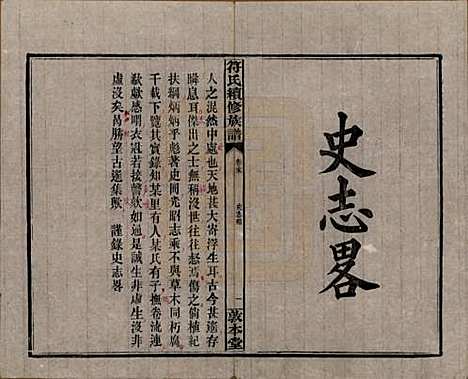 史志畧
符氏續修族譜
卷末
史志畧
一
敦本堂
人之混然中處也天地甚大寄浮生耳古今甚遙存
瞬息耳傑出之士無稱沒世往往愁焉傷之萄植紀
扶綱炳炳乎彪著史間光昭志乘不與草木同朽腐
千載下覽其實錄知某里有人某氏有子撫卷流連
欷歔感喟衣冠若接謦欬如遇是誠生非虛生沒非
虛沒矣曷勝望古遙集歟　謹錄史志畧